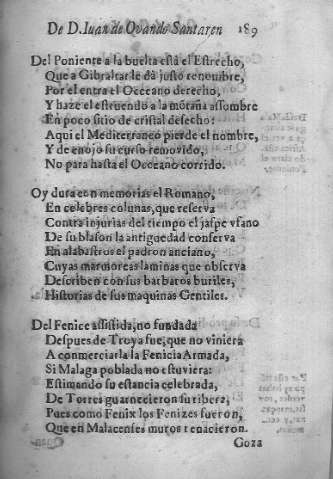 De D. Iuan de Ovando Santaren 189
Del Poniente a la buelta està el Estrecho,
Que a Gibraltar le dà justo renombre,
Por el entra el Occeano derecho,
Y haze el estruendo a la mõtaña assombre
En poco sitio de cristal desecho:
Aqui el Mediterraneo pierde el nombre,
Y de enojo su curso removido,
No para hasta el Occeano corrido.
Oy dura con memorias el Romano,
En celebres colunas, que reserva
Contra injurias del tiempo el jaspe vfano
De su blason la antiguedad conserva
En alabastros el padron anciano,
Cuyas marmoreas laminas que observa
Describen con sus barbaros buriles,
Historias de sus maquinas Gentiles.
Del Fenice assistida, no fundada
Despues de Troya fue, que no viniera
A conmerciarla la Fenicia Armada,
Si Malaga poblada no estuviera:
Estimando su estancia celebrada,
De Torres guarnecieron su ribera,
Pues como Fenix los Fenizes fueron,
Que en Malacenses muros renacieron.
Goza